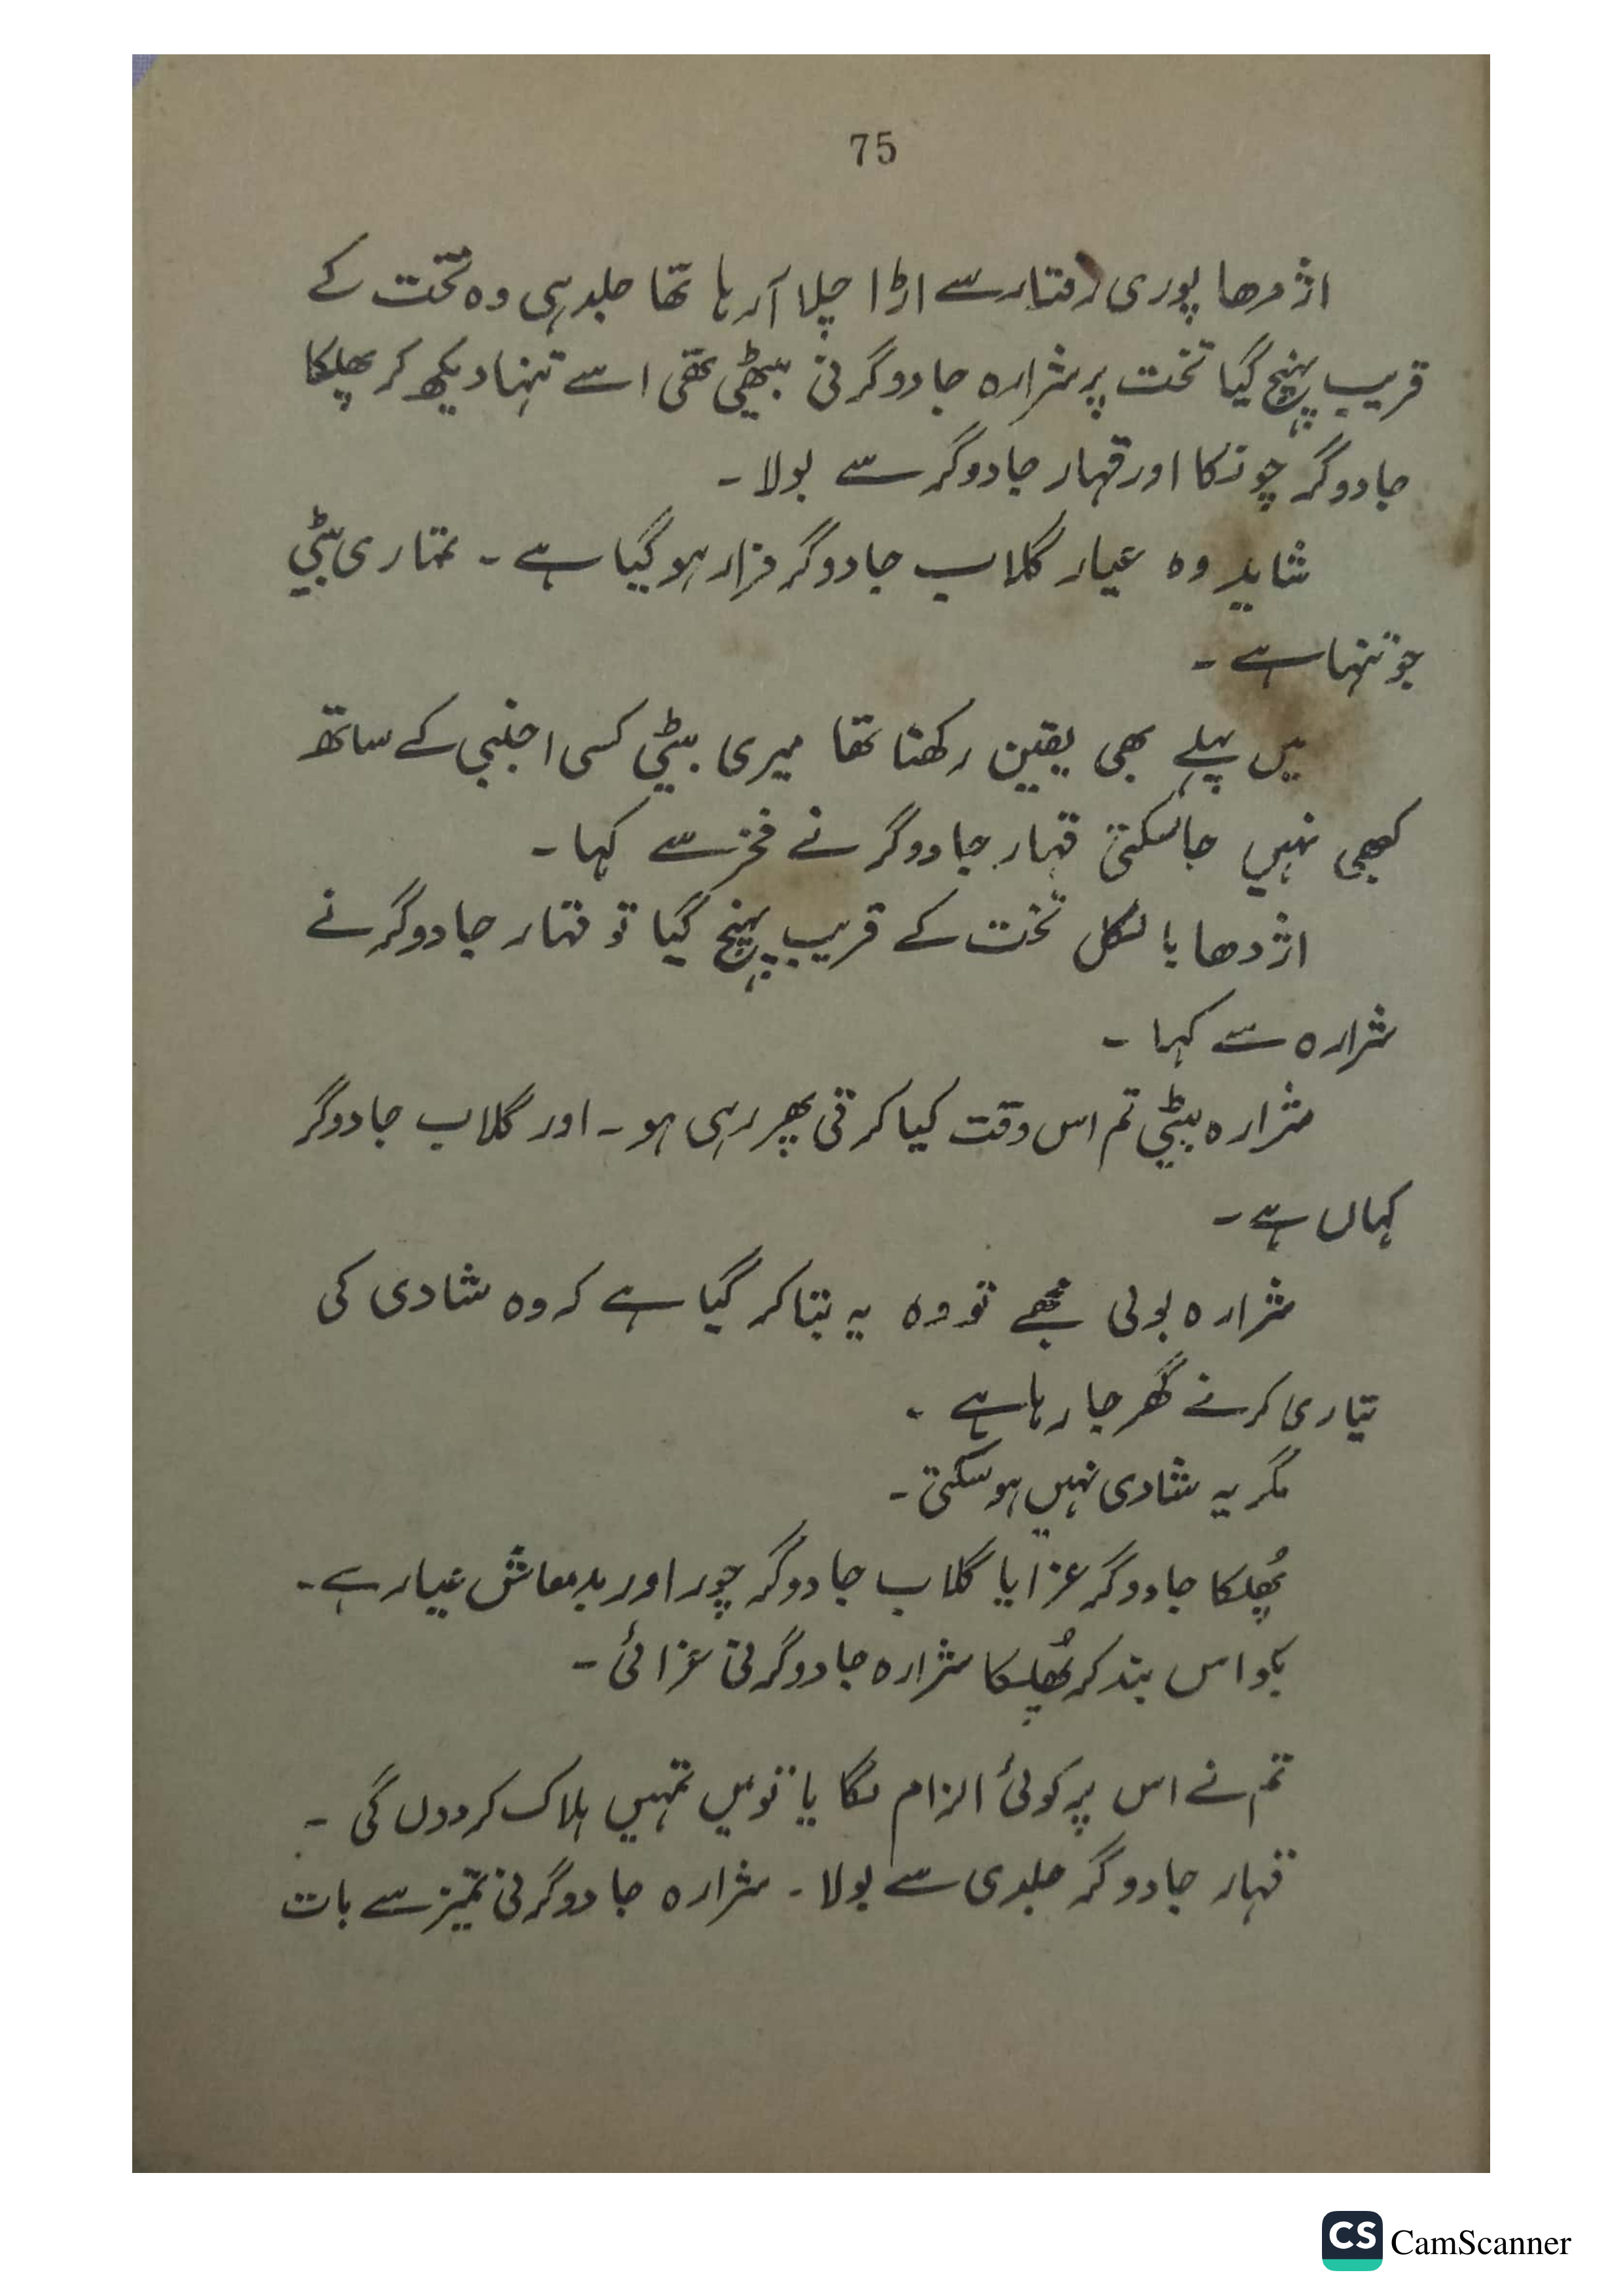 75
اژدھا پوری رفتار سے اڑا چلا آ رہا تھا جلد ہی وہ تخت کے
قریب پہنچ گیا تخت پر شرارہ جادوگرنی بیٹھی تھی اسے تنہا دیکھ کر پھلکا
جادوگر چونکا اور قہار جادوگر سے بولا ۔
شاید وہ عیار گلاب جادوگر فرار ہو گیا ہے ۔ تمہاری بیٹی
جو تنہا ہے ۔
میں پہلے بھی یقین رکھتا تھا میری بیٹی کسی اجنبی کے ساتھ
کبھی نہیں جا سکتی قہار جادوگر نے فخر سے کہا ۔
اژدھا بالکل تخت کے قریب پہنچ گیا تو قہار جادوگر نے
شرارہ سے کہا ۔
شرارہ بیٹی تم اس وقت کیا کرتی پھر رہی ہو ۔ اور گلاب جادوگر
کہاں ہے ۔
شرارہ بولی مجھے تو وہ یہ بتا کر گیا ہے کہ وہ شادی کی
تیاری کرنے گھر جا رہا ہے ۔
مگر یہ شادی نہیں ہو سکتی ۔
پُھلکا جادوگر غرایا گلاب جادوگر چور اور بدمعاش عیار ہے ۔
بکواس بند کر پُھلکا شرارہ جادوگرنی غرائی ۔
تم نے اس پر کوئی الزام لگایا تو میں تمہیں ہلاک کر دوں گی ۔
قہار جادوگر جلدی سے بولا ۔ شرارہ جادوگرنی تمیز سے بات
CS CamScanner